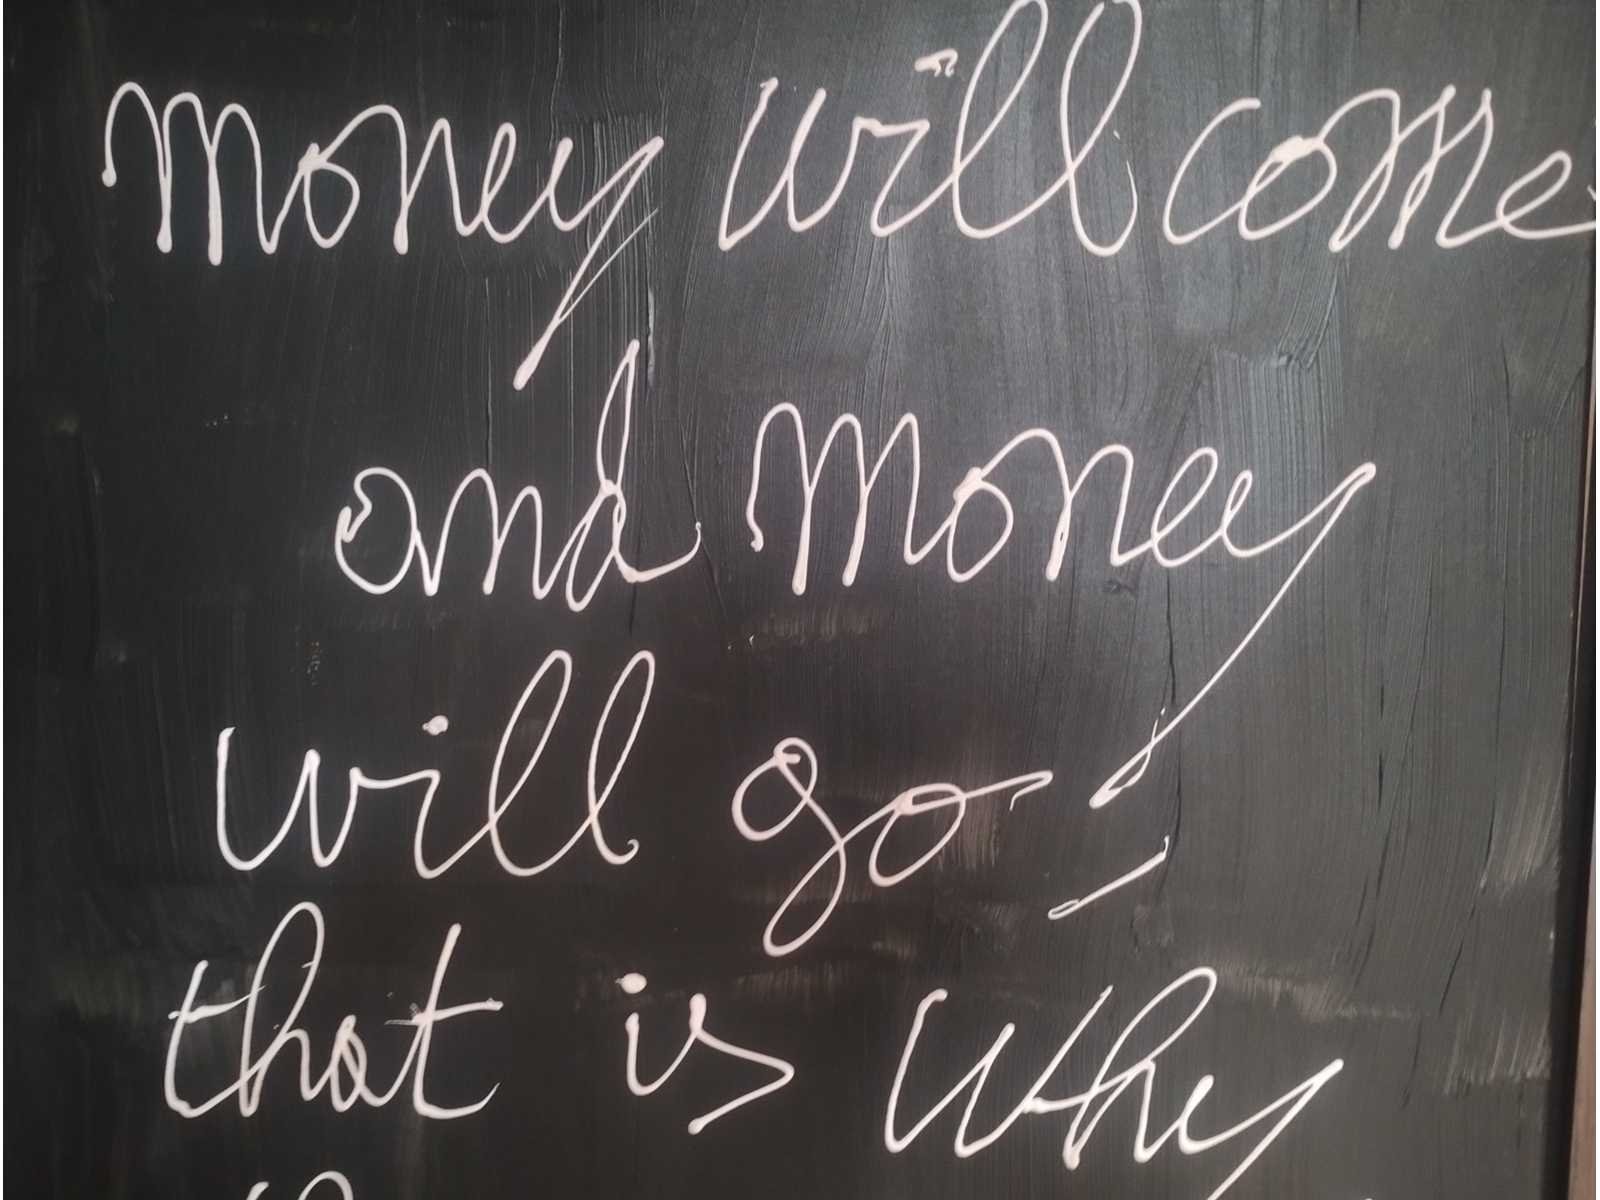 money will come
and money
will go
that is why